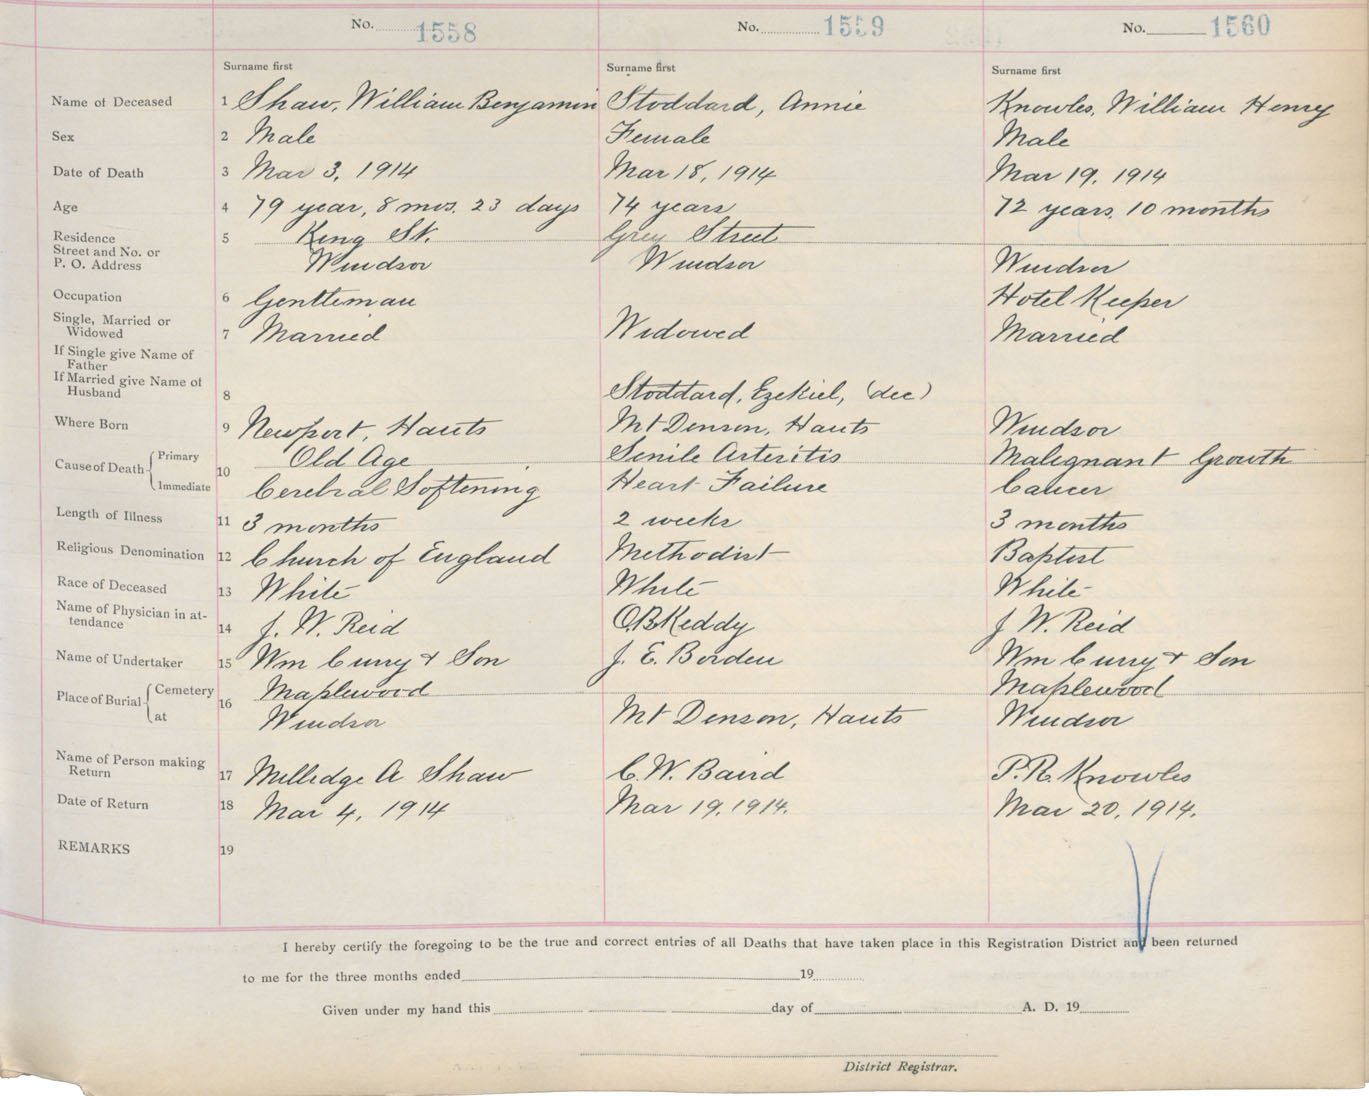 No. 1558 No. 1559 No. 1560
Surname first Surname first Surname first
Name of Deceased 1 Shaw, William Benjamin Stoddard, Annie Knowles, William Henry
Sex 2 Male Female Male
Date of Death 3 Mar 3, 1914 Mar 18, 1914 Mar 19, 1914
Age 4 79 year, 8 mos. 23 days 74 years 72 years, 10 months
Residence 5 King St. Grey Street
Street and No. or
P. O. Address Windsor Windsor Windsor
Occupation 6 Gentleman Hotel Keeper
Single, Married or
Widowed 7 Married Widowed Married
If Single give Name of
Father
If Married give Name of
Husband 8 Stoddard, Ezekiel, (dec)
Where Born 9 Newport, Hants Mt Denson, Hants Windsor
Cause of Death Primary 10 Old Age Senile Arteritis Malignant Growth
Immediate Cerebral Softening Heart Failure Cancer
Length of Illness 11 3 months 2 weeks 3 months
Religious Denomination 12 Church of England Methodist Baptist
Race of Deceased 13 White White White
Name of Physician in at-
tendance 14 J. W. Reid O.B. Keddy J. W. Reid
Name of Undertaker 15 Wm Curry & Son J. E. Borden Wm Curry & Son
Place of Burial Cemetery 16 Maplewood Maplewood
at Windsor Mt Denson, Hants Windsor
Name of Person making
Return 17 Milledge A Shaw C. W. Baird P. R. Knowles
Date of Return 18 Mar 4, 1914 Mar 19, 1914. Mar 20, 1914.
REMARKS 19
I hereby certify the foregoing to be the true and correct entries of all Deaths that have taken place in this Registration District and been returned
to me for the three months ended 19
Given under my hand this day of A. D. 19
District Registrar.